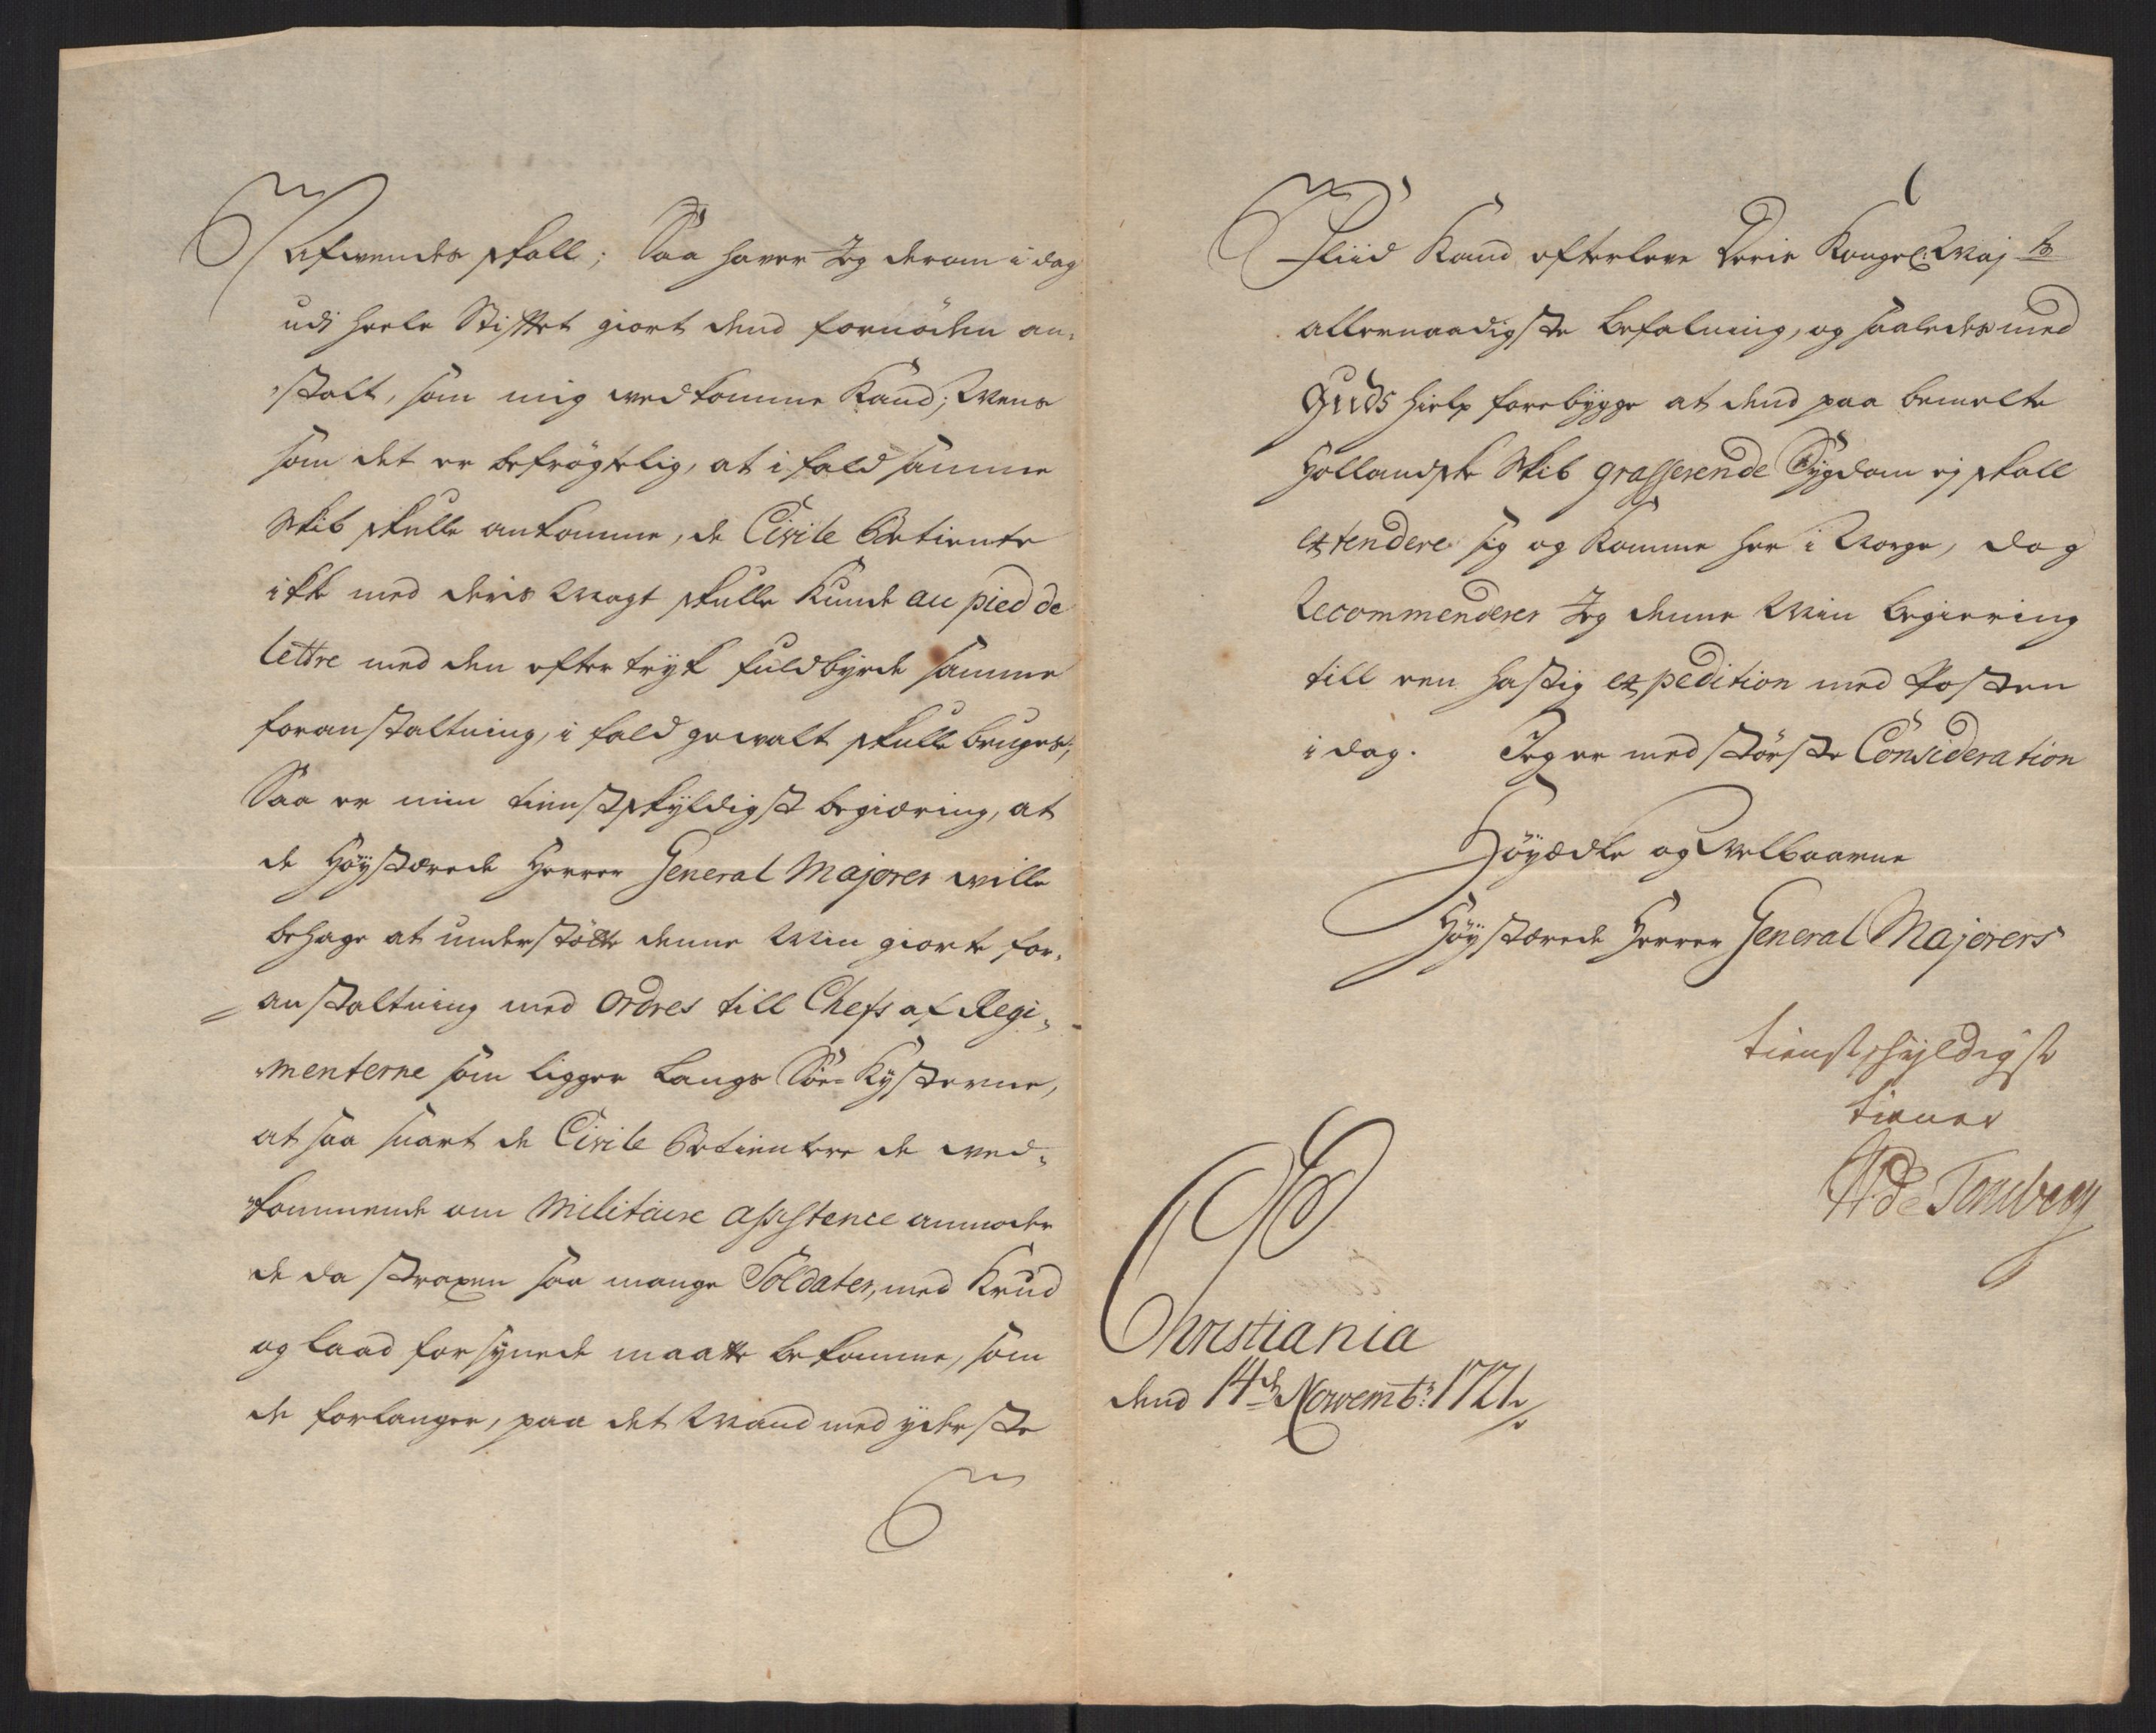 Afwendes skall; Saa haver Jeg derom i dag
udi heele Stiftet giort dend fornöden an-
stalt, som mig vedkomme Kand; Mens
som det er befrögtelig, at i fald samme
Skib skulle ankomme, de Civile Betiente
ikke med deris Magt skulle kunde au pied de
lettre med den eftertryk fuldbyrde samme
foranstaltning, i fald gewalt skulle bruges;
Saa er min tienstskyldigst begiæring, at
de Höystærede Herrer General Majorer wille
behage at understötte denne Min giorte for-
anstaltning med Ordres till Chefs af Regi-
menterne som ligger Langs Söe-Kysterne,
at saa snart de Civile Betientere de ved-
kommende om Militaire assistence anmoder
de da straxen saa mange Soldater, med Krud
og Laad forsynede maatte bekomme, som
de forlanger, paa det Mand med yderste
Fliid Kand efterleve Deris Kongel: Maj ts
allernaadigste befalning, og saaledes med
Guds hielp forebygge at dend paa bemelte
Hollandske Skib grasserende Sygdom ej skall
extendere sig og komme her i Norge, dog
Recommenderer Jeg denne Min begiering
till een hastig expedition med Posten
i dag. Jeg er med störste Consideration
Höyædle og Velbaarne
Höystærede Herrer General Majorers
tienstskyldigste
tiener
W. de Tonsberg
Christiania
dend 14de Novembr: 1721